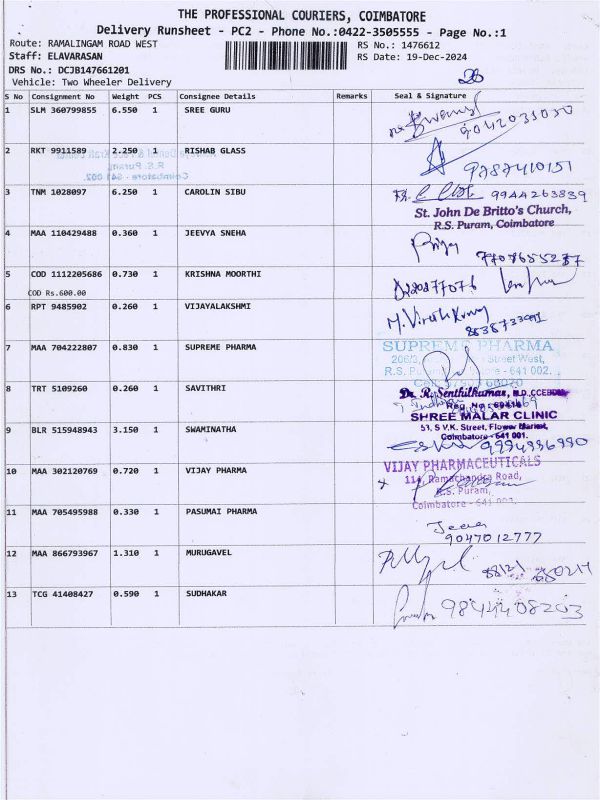 THE PROFESSIONAL COURIERS, COIMBATORE
Delivery Runsheet - PC2 - Phone No.:0422-3505555 - Page No.:1
Route: RAMALINGAM ROAD WEST
RS No.: 1476612
Staff: ELAVARASAN
RS Date: 19-Dec-2024
DRS No.: DCJB147661201
Vehicle: Two Wheeler Delivery
S No Consignment No Weight PCS Consignee Details Remarks Seal & Signature
1 SLM 360799855 6.550 1 SREE GURU
9042031030
2 RKT 9911589 2.250 1 RISHAB GLASS
R.S. Puram,
Coimbatore - 641 002.
9787410151
3 TNM 1028097 6.250 1 CAROLIN SIBU
9944263839
St. John De Britto's Church,
R.S. Puram, Coimbatore
4 MAA 110429488 0.360 1 JEEVYA SNEHA
5 COD 1112205686 0.730 1 KRISHNA MOORTHI
COD Rs.600.00
6 RPT 9485902 0.260 1 VIJAYALAKSHMI
7 MAA 704222807 0.830 1 SUPREME PHARMA
SUPREME PHARMA
Street West,
- 641 002.
8 TRT 5109260 0.260 1 SAVITHRI
Dr. R. Senthilkumar,
SHREE MALAR CLINIC
53, S V.K. Street, Flower Market,
Coimbatore - 641 001.
9 BLR 515948943 3.150 1 SWAMINATHA
9994936990
10 MAA 302120769 0.720 1 VIJAY PHARMA
VIJAY PHARMACEUTICALS
114, Ramachandra Road,
R.S. Puram,
Coimbatore - 641
11 MAA 705495988 0.330 1 PASUMAI PHARMA
9047012777
12 MAA 866793967 1.310 1 MURUGAVEL
13 TCG 41408427 0.590 1 SUDHAKAR